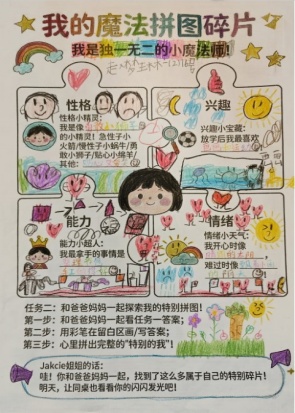 我的魔法拼图碎片
我是独一无二的小魔法师!
性格
性格小精灵:
我是像
的小精灵! 急性子小
火箭/慢性子小蜗牛/勇
敢小狮子/贴心小绵羊/
其他:
兴趣
兴趣小宝藏:
放学后我最喜欢
能力
能力小超人:
我最拿手的事情是
情绪
情绪小天气:
我开心时像
难过时像
任务二: 和爸爸妈妈一起探索我的特别拼图!
第一步: 和爸爸妈妈一起看任务一答案;
第二步: 用彩笔在留白区画/写答案;
第三步: 心里拼出完整的“特别的我”!
Jakcie姐姐的话:
哇! 你和爸爸妈妈一起, 找到了这么多属于自己的特别碎片!
明天, 让同桌也看看你的闪闪发光吧!